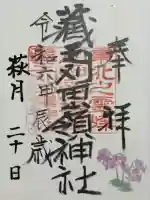 奉拝
蔵王刈田嶺神社
令和六甲辰歳
萩月二十日